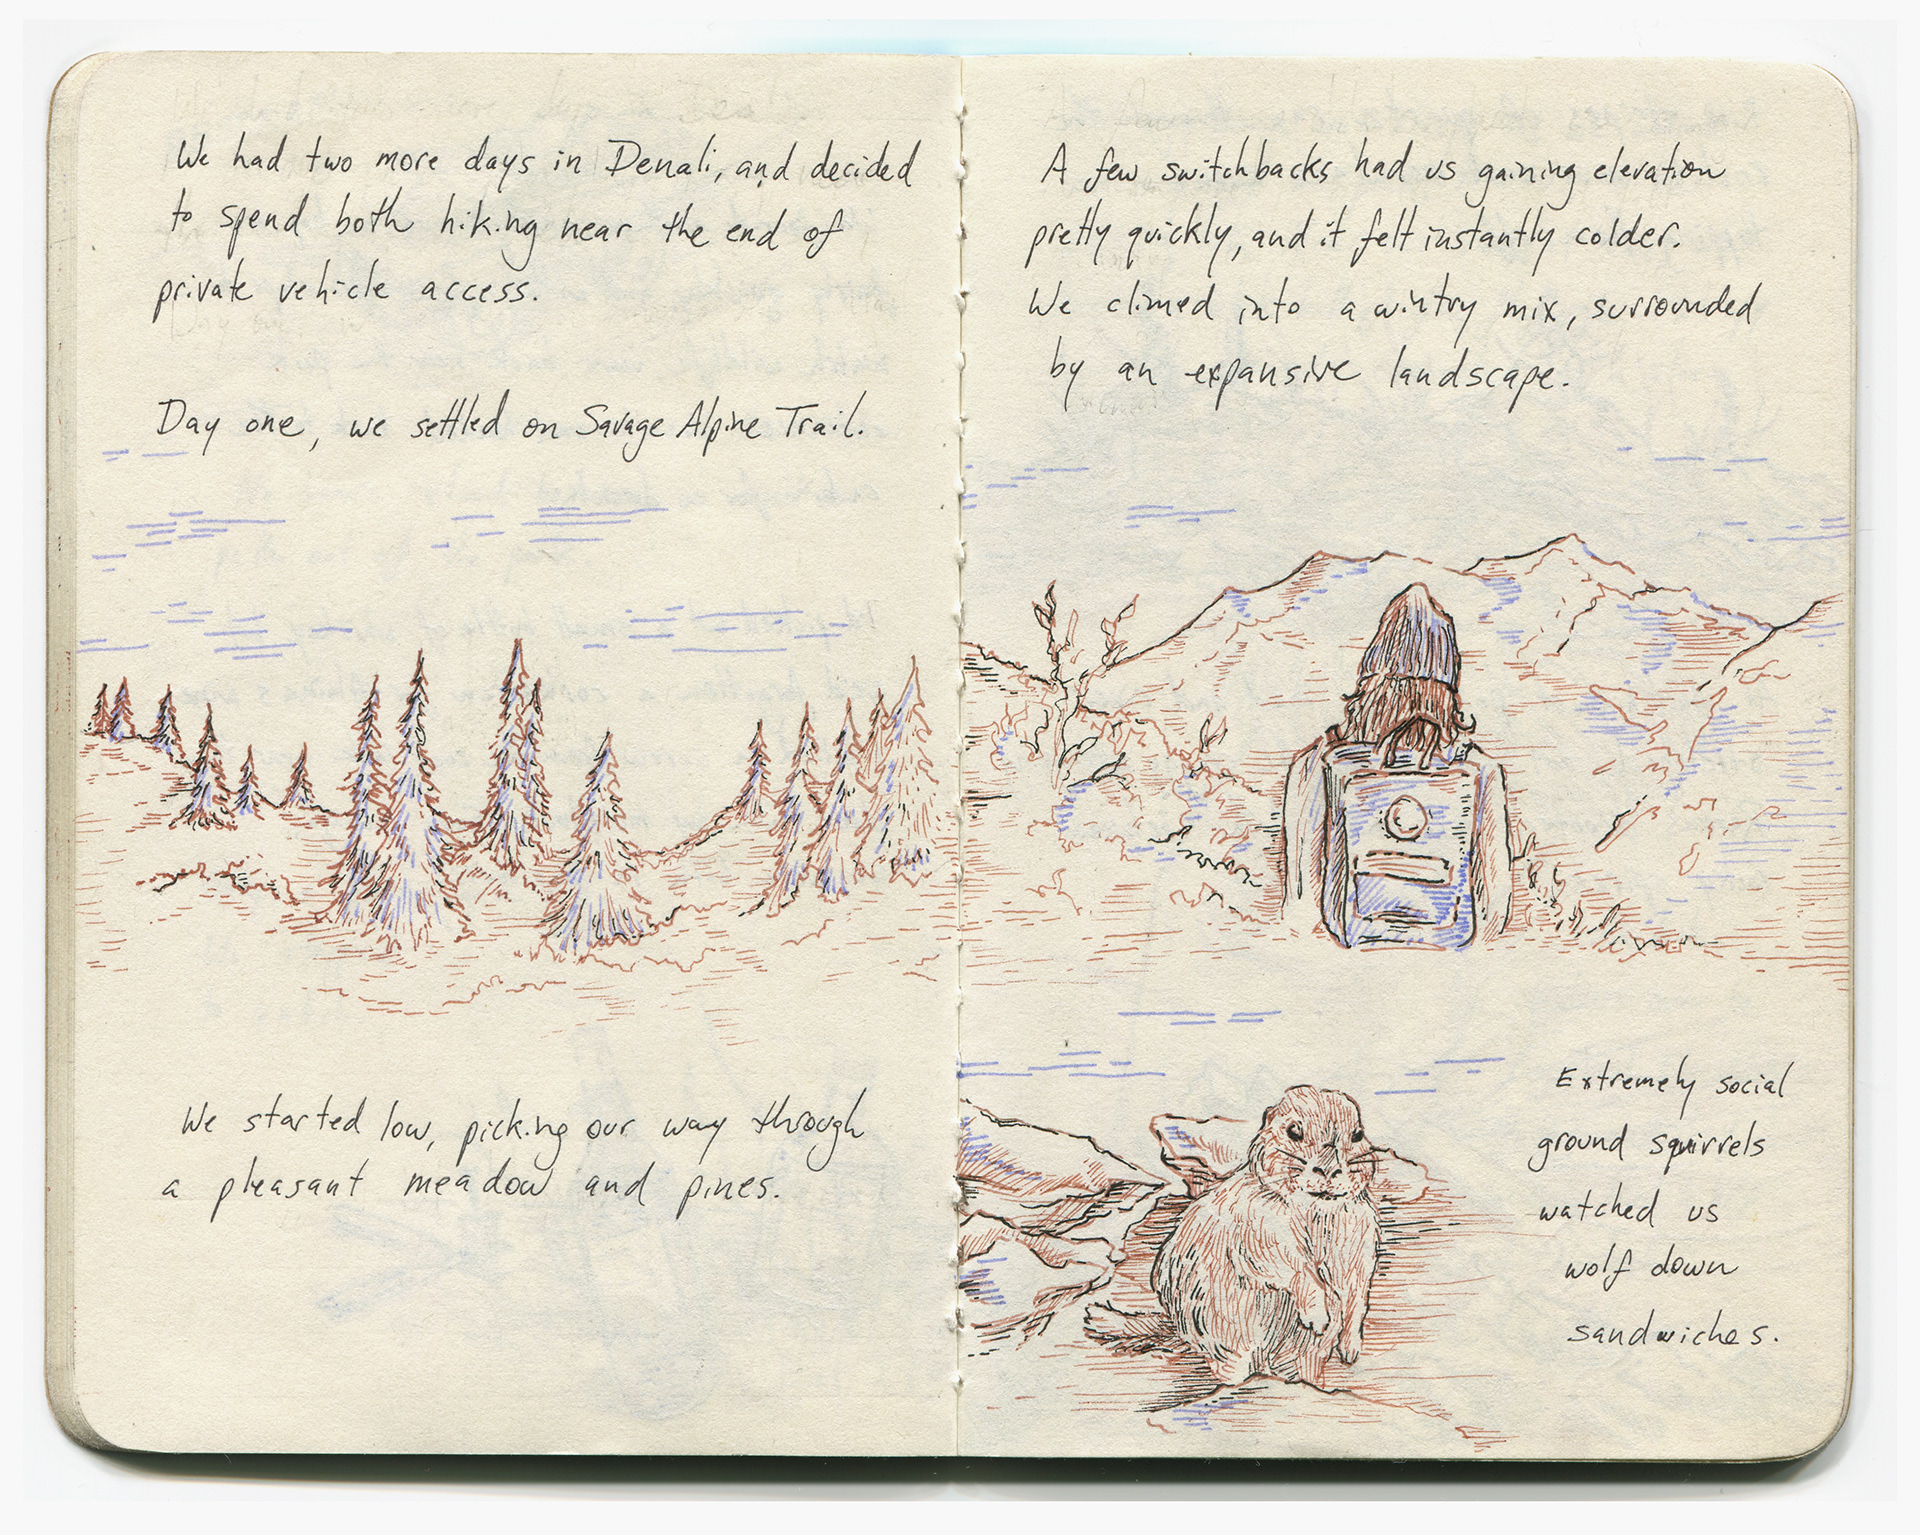 We had two more days in Denali, and decided
to spend both hiking near the end of
private vehicle access.
Day one, we settled on Savage Alpine Trail.
We started low, picking our way through
a pleasant meadow and pines.
A few switchbacks had us gaining elevation
pretty quickly, and it felt instantly colder.
We climed into a wintry mix, surrounded
by an expansive landscape.
Extremely social
ground squirrels
watched us
wolf down
sandwiches.